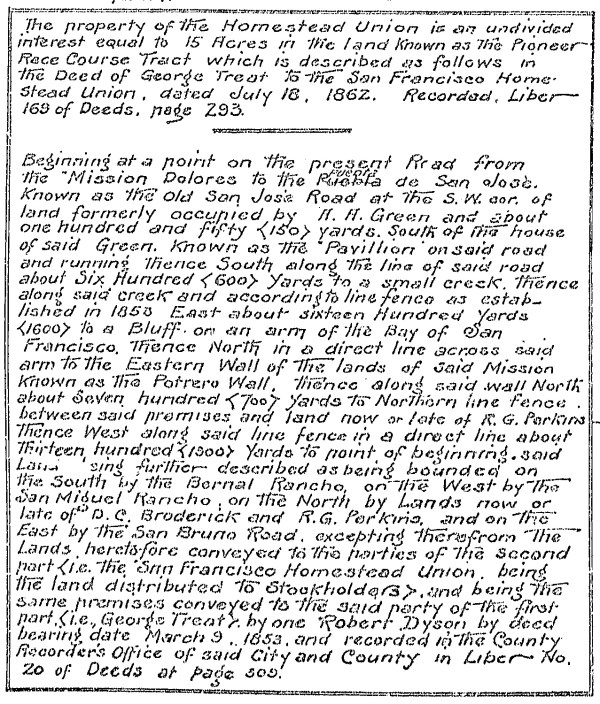 The property of the Homestead Union is an undivided
interest equal to 15 Acres in the land Known as the Pioneer
Race Course Tract which is described as follows in
the Deed of George Treat to the San Francisco Home-
stead Union, dated July 18, 1862. Recorded, Liber
169 of Deeds, page 293.
Beginning at a point on the present Rrad from
the "Mission Dolores to the Puebla de San Jose.
Known as the Old San Jose Road at the S.W. cor. of
land formerly occupied by H. H. Green and about
one hundred and fifty <150> yards. South of the house
of said Green. Known as the "Pavillion" on said road
and running thence South along the line of said road
about Six Hundred <600> Yards to a small creek, thence
along said creek and according to line fence as estab-
lished in 1853 East about sixteen Hundred Yards
<1600> to a Bluff on an arm of the Bay of San
Francisco. Thence North in a direct line across said
arm to the Eastern Wall of the lands of said Mission
Known as the Potrero Wall, Thence along said wall North
about Seven hundred <700> Yards to Northern line fence
between said premises and land now or late of R. G. Parkins
Thence West along said line fence in a direct line about
Thirteen hundred <1300> Yards to point of beginning. said
Land sing further described as being bounded on
the South by the Bernal Rancho, on the West by the
San Miguel Rancho, on the North by Lands now or
late of D. C. Broderick and R.G. Parkins, and on the
East by the San Bruno Road, excepting therefrom the
Lands heretofore conveyed to the parties of the second
part <i.e. the San Francisco Homestead Union, being
the land distributed to Stockholders>, and being the
same premises conveyed to the said party of the first
part <i.e., George Treat>, by one Robert Dyson by deed
bearing date March 9, 1853, and recorded in the County
Recorder's Office of said City and County in Liber No.
20 of Deeds at page 509.